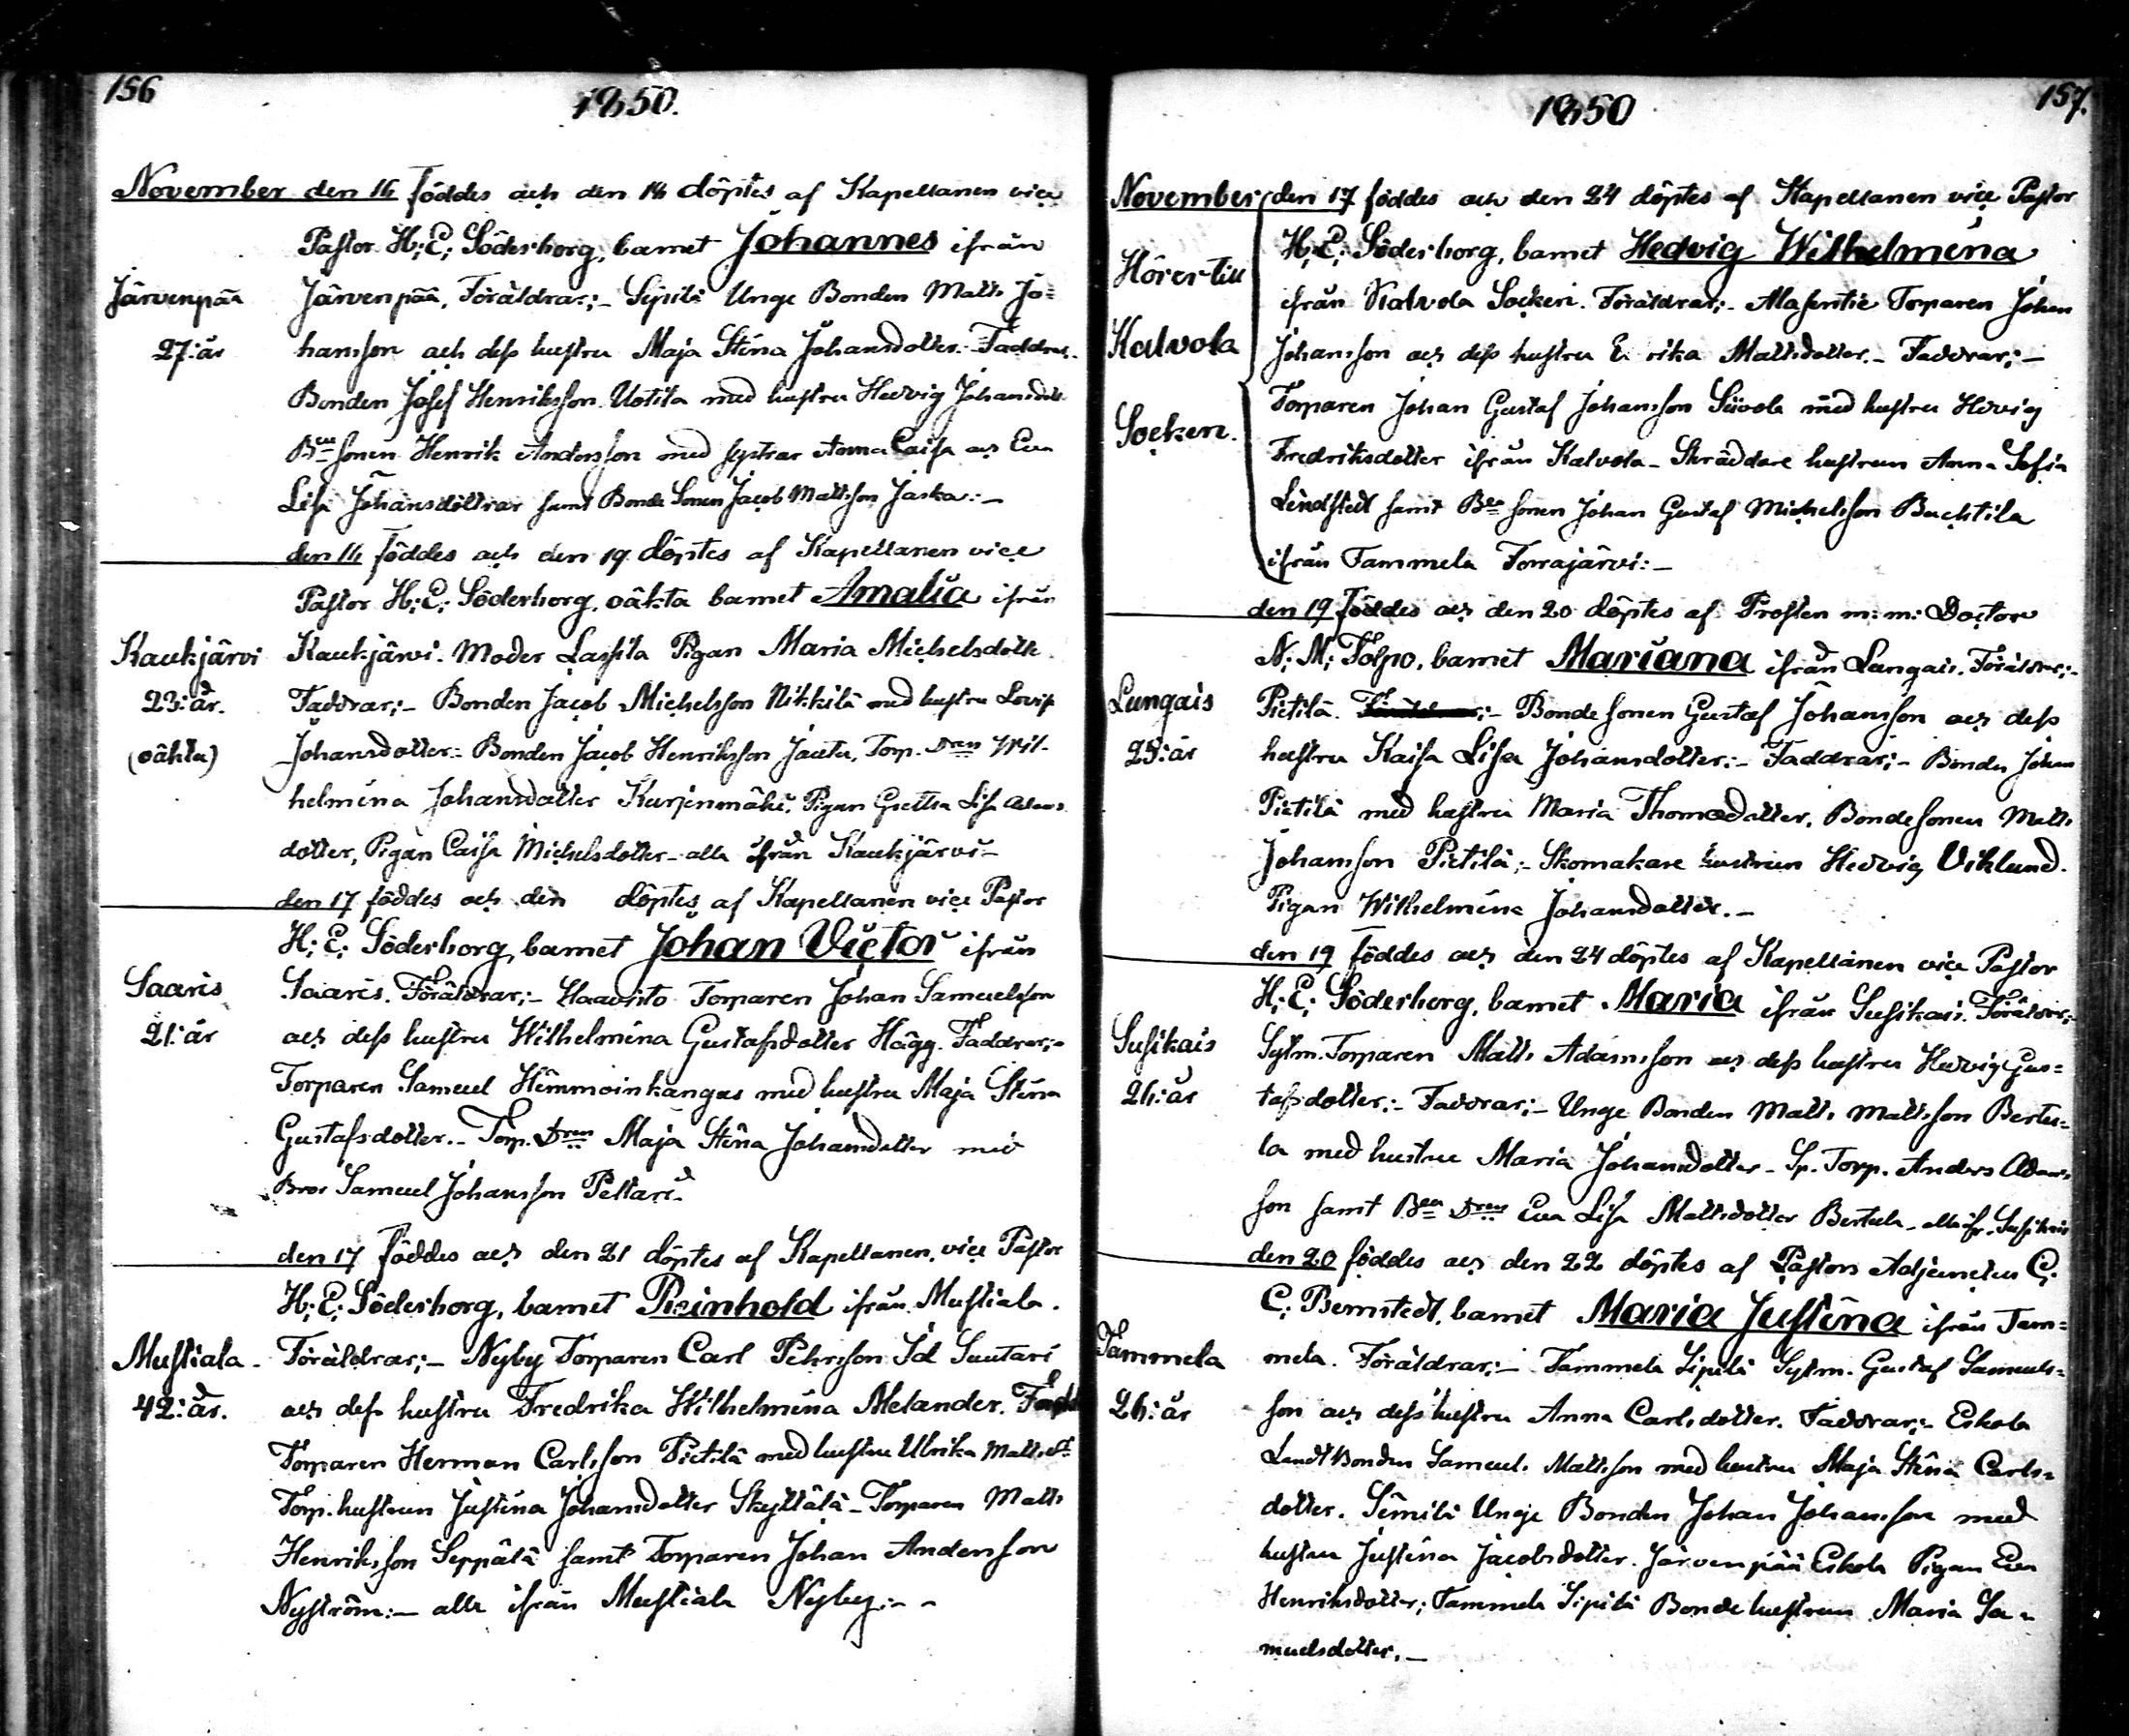 156
1850.
November den 16 föddes och den 18 döptes af Kapellanen vice
Pastor H: E: Söderborg, barnet Johannes ifrån
Järvenpää Järvenpää, Föräldrar:- Sipilä Unge Bonden Matts Jo=
27: år hansson och dess hustru Maja Stina Johansdotter. Faddrar.
Bonden Josef Henriksson Uotila med hustru Hedvig Johansdotr
Bde sonen Henrik Andersson med systrar Anna Caisa och Eva
Lisa Johansdöttrar samt Bonde Sonen Jacob Mattsson Jaska:-
den 16 föddes och den 19 döptes af Kapellanen vice
Pastor H: E: Söderborg, oäkta barnet Amalia ifrån
Kaukjärvi Kaukjärvi. Moder Lassila Pigan Maria Michelsdotter.
23: år. Faddrar:- Bonden Jacob Michelsson Nikkilä med hustru Lovisa
(oäkta) Johansdotter:- Bonden Jacob Henriksson Jauta, Torp. Dren Wil-
helmina Johansdotter Kurjenmäki. Pigan Gretha Lisa Adams
dotter, Pigan Caisa Michelsdotter - alla ifrån Kaukjärvi-
den 17 föddes och den döptes af Kapellanen vice Pastor
H: E: Söderborg, barnet Johan Victor ifrån
Saaris Saaris. Föräldrar:- Haavisto Torparen Johan Samuelsson
21: år och dess hustru Wilhelmina Gustafsdotter Hägg. Faddrar:-
Torparen Samuel Himmoinkangas med hustru Maja Stina
Gustafsdotter.- Torp. Dren Maja Stina Johansdotter med
Bror Samuel Johansson Peltari.
den 17 föddes och den 21 döptes af Kapellanen, vice Pastor
H: E: Söderborg, barnet Reinhold ifrån Mustiala.
Mustiala - Föräldrar:- Nyby Torparen Carl Pehrsson Id Suutari
42: år. och dess hustru Fredrika Wilhelmina Melander.
Torparen Herman Carlsson Pietilä med hustru Ulrika Mattsdr
Torp. hustrun Justina Johansdotter Skyttälä - Torparen Matts
Henriksson Seppälä samt Torparen Johan Andersson
Nyström:- alla ifrån Mustiala Nyby:-
157.
1850
November den 17 föddes och den 24 döptes af Kapellanen vice Pastor
H: E: Söderborg, barnet Hedvig Wilhelmina
Hörer till ifrån Kalvola Socken. Föräldrar:- Torparen Johan
Kalvola Johansson och dess hustru Erika Mattsdotter.- Faddrar:-
Torparen Johan Gustaf Johansson Siivola med hustru Hedvig
Socken. Fredriksdotter ifrån Kalvola - Skräddare hustrun Anna Sofia
Lindstedt samt Bde sonen Johan Gustaf Michelsson Buchtila
ifrån Tammela Torrajärvi:-
den 19 föddes och den 20 döptes af Prosten m: m: Doctorn
N: M: Tolpo, barnet Mariana ifrån Lungais. Föräldrar:-
Lungais Pietilä. :- Bonde sonen Gustaf Johansson och dess
25: år hustru Kaisa Lisa Johansdotter:- Faddrar:- Bonden Johan
Pietilä med hustru Maria Thomædotter, Bonde sonen Matts
Johansson Pietilä:- Skomakare hustrun Hedvig Viklund.
Pigan Wilhelmina Johansdotter.-
den 19 föddes och den 24 döptes af Kapellanen vice Pastor
H: E: Söderborg, barnet Maria ifrån Susikais. Föräldrar:-
Susikais Sytm. Torparen Matts Adamsson och dess hustru Hedvig Gus=
26: år tafsdotter:- Faddrar:- Unge Bonden Matts Mattsson Bertu=
la med hustru Maria Johansdotter - Sp. Torp. Anders Adams
son samt Bde Dren Eva Lisa Mattsdotter Bertula - alla ifr. Susikais
den 20 föddes och den 22 döptes af Pastors Adjuncten C:
C: Bernstedt, barnet Maria Justina ifrån Tam=
Tammela mela. Föräldrar:- Tammela Sipilä Sytm. Gustaf Samuels=
26: år son och dess hustru Anna Carlsdotter. Faddrar:- Eskola
Landt Bonden Samuel Mattsson med hustru Maja Stina Carls=
dotter. Simila Unge Bonden Johan Johansson med
hustru Justina Jacobsdotter. Järvenpää Eskola Pigan Eva
Henriksdotter; Tammela Sipilä Bonde hustrun Maria Sa=
muelsdotter.-